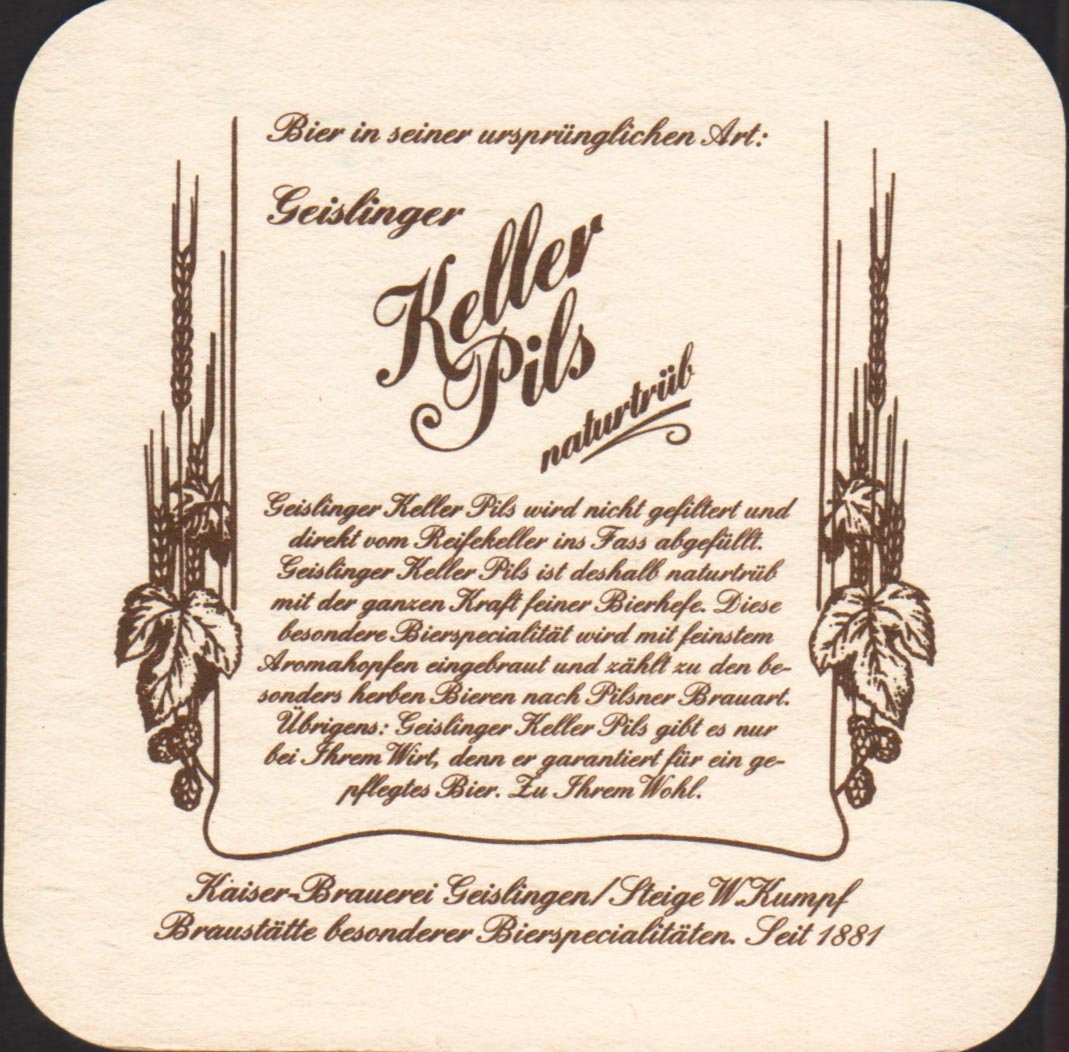 Bier in seiner ursprünglichen Art:
Geislinger
Keller
Pils
naturtrüb
Geislinger Keller Pils wird nicht gefiltert und
direkt vom Reifekeller ins Fass abgefüllt.
Geislinger Keller Pils ist deshalb naturtrüb
mit der ganzen Kraft feiner Bierhefe. Diese
besondere Bierspecialität wird mit feinstem
Aromahopfen eingebraut und zählt zu den be-
sonders herben Bieren nach Pilsner Brauart.
Übrigens: Geislinger Keller Pils gibt es nur
bei Ihrem Wirt, denn er garantiert für ein ge-
pflegtes Bier. Zu Ihrem Wohl.
Kaiser-Brauerei Geislingen/Steige W. Kumpf
Braustätte besonderer Bierspecialitäten. Seit 1881